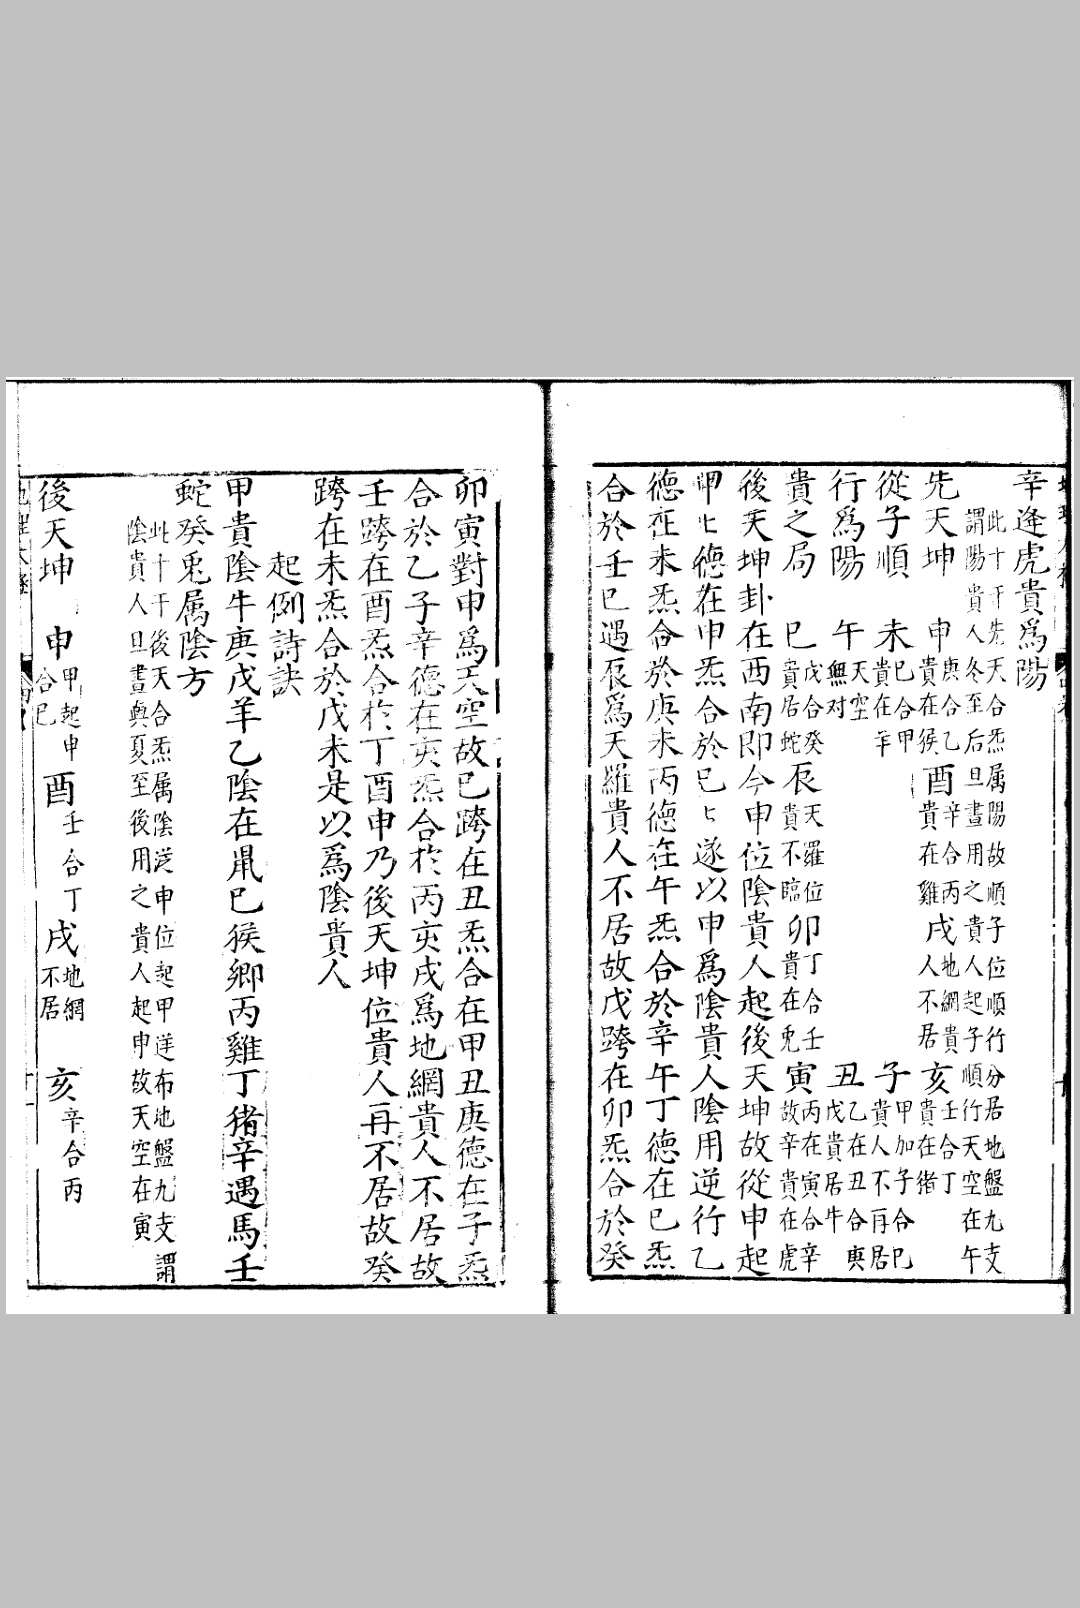 辛逢虎貴爲陽
此十干先天合炁属陽故順子位順行分居地盤九支
謂陽貴人冬至后旦晝用之貴人起子順行天空在午
先天坤 申 庚合乙貴在猴 酉 辛合丙貴在雞 戌 地網貴人不居 亥 壬合丁貴在猪
從子順 未 巳合甲貴在羊 子 甲加子合巳貴人不再居
行爲陽 午 天空無对 丑 乙在丑合庚戊貴居牛
貴之局 巳 戊合癸貴居蛇 辰 天羅位貴不臨 卯 丁合壬貴在兎 寅 丙在寅合辛故辛貴在虎
後天坤卦在西南即今申位陰貴人起後天坤故從申起
甲甲德在申炁合於巳巳遂以申爲陰貴人陰用逆行乙
德在未炁合於庚未丙德在午炁合於辛午丁德在巳炁
合於壬巳遇辰爲天羅貴人不居故戊跨在卯炁合於癸
卯寅對申爲天空故巳跨在丑炁合在甲丑庚德在子炁
合於乙子辛德在亥炁合於丙亥戌爲地網貴人不居故
壬跨在酉炁合於丁酉申乃後天坤位貴人再不居故癸
跨在未炁合於戊未是以爲陰貴人
起例詩訣
甲貴陰牛庚戊羊乙陰在鼠巳猴鄉丙雞丁猪辛遇馬壬
蛇癸兎属陰方
此十干後天合炁属陰逆申位起甲逆布地盤九支謂
陰貴人旦晝與夏至後用之貴人起申故天空在寅
後天坤 申 甲起申合巳 酉 壬合丁 戌 地網不居 亥 辛合丙